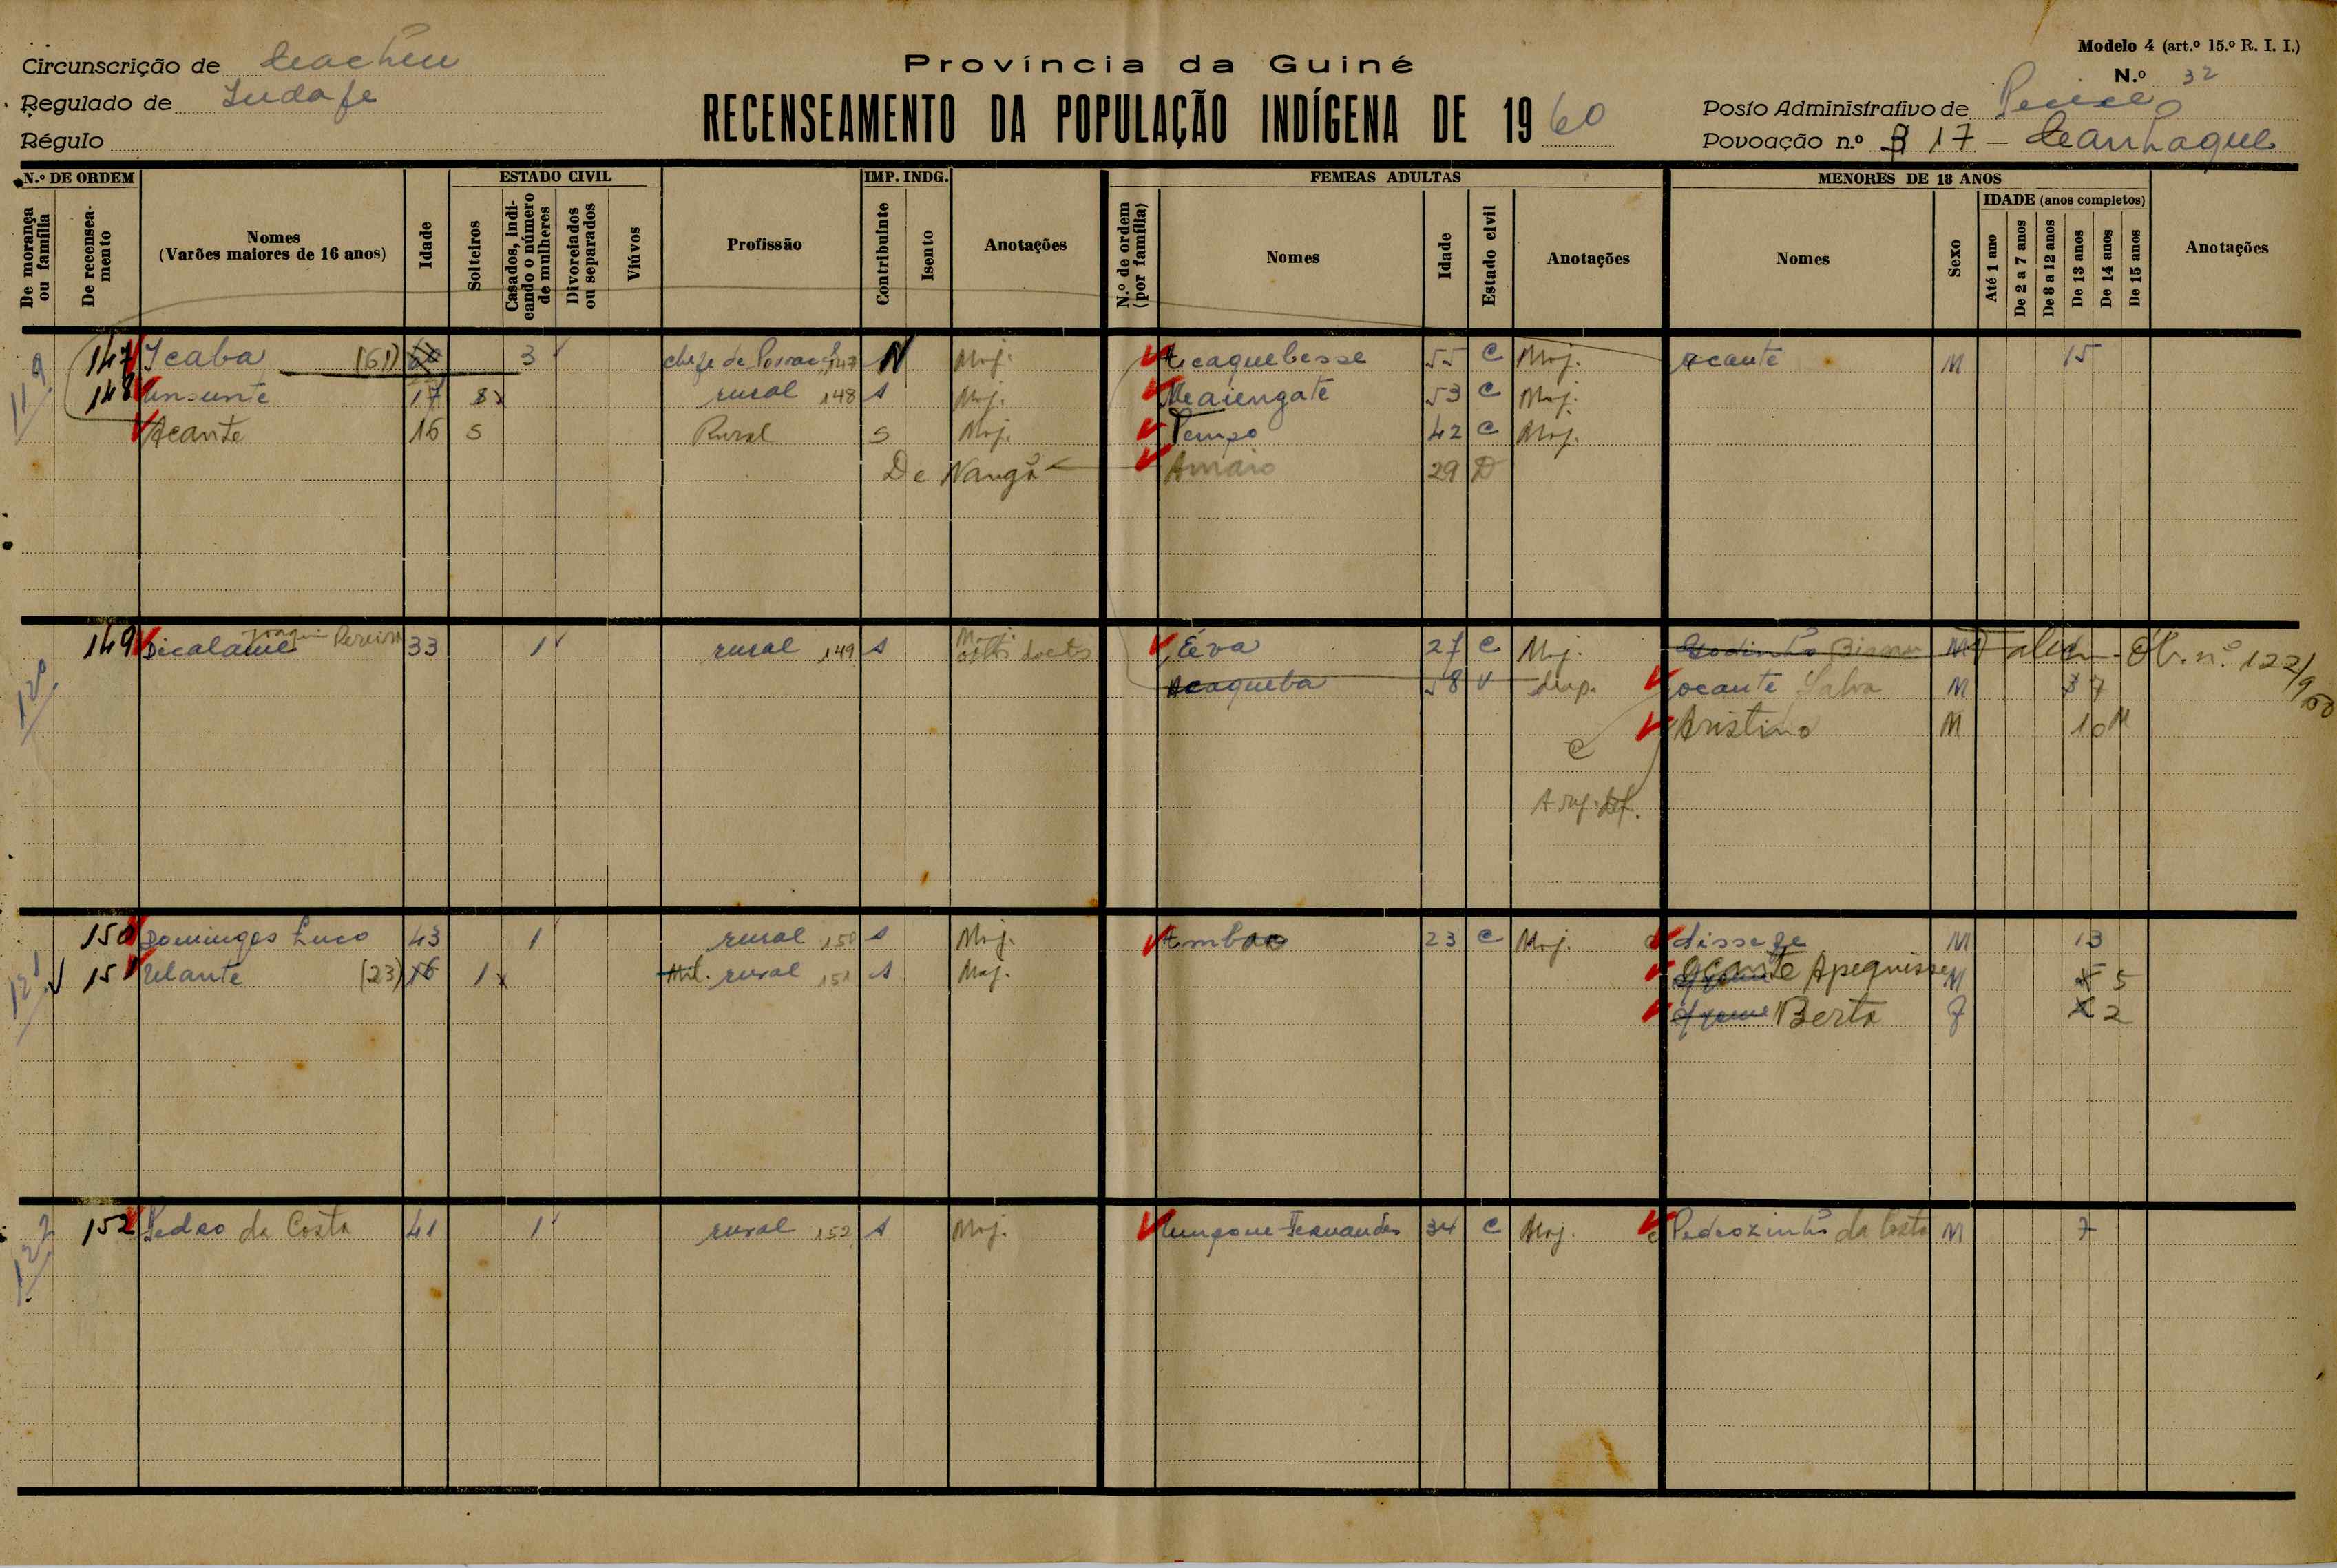 Modelo 4 (art.º 15.º R. I. I.)
Circunscrição de Cacheu
Província da Guiné
N.º 32
Regulado de
RECENSEAMENTO DA POPULAÇÃO INDÍGENA DE 1960
Posto Administrativo de
Régulo
Povoação n.º 17 - Canhaque
N.º DE ORDEM
ESTADO CIVIL
IMP. INDG.
FEMEAS ADULTAS
MENORES DE 18 ANOS
De morança ou família
De recenseamento
Nomes
(Varões maiores de 16 anos)
Idade
Solteiros
Casados, indicando o número de mulheres
Divorciados ou separados
Viúvos
Profissão
Contribuinte
Isento
Anotações
N.º de ordem (por família)
Nomes
Idade
Estado civil
Anotações
Nomes
Sexo
IDADE (anos completos)
Até 1 ano
De 2 a 7 anos
De 8 a 12 anos
De 13 anos
De 14 anos
De 15 anos
Anotações
119 147 Icaba (61) 60 3 chefe de 147 N Maj. Acaquebesse 55 C Maj. ocante M 15
148 17 S rural 148 s Maj. 53 C Maj.
Acante 16 S Rural S Maj. Pempo 42 C Maj.
De Nangã Amaio 29 D
120 149 Dicalame Joaquim Pereira 33 1 rural 149 s Éva 27 C Maj. Godinho M Falec. Ób. n.º 122/960
Acaqueba 58 V ocante Salva M 7
C Aristino M 10 M
121 150 Domingos Luco 43 1 rural 150 s Maj. Ambac 23 C Maj. dissefe M 13
151 Ulante (23) 16 1 rural 151 s Maj. Ocante Apequisse M 5
Berta F 2
122 152 Pedro da Costa 41 1 rural 152 s Maj. Fernandes 34 C Maj. Pedrozinho da Costa M 7